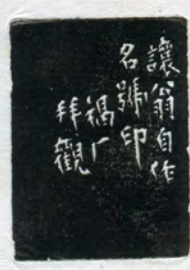 讓翁自作
名號印
褐厂
拜觀